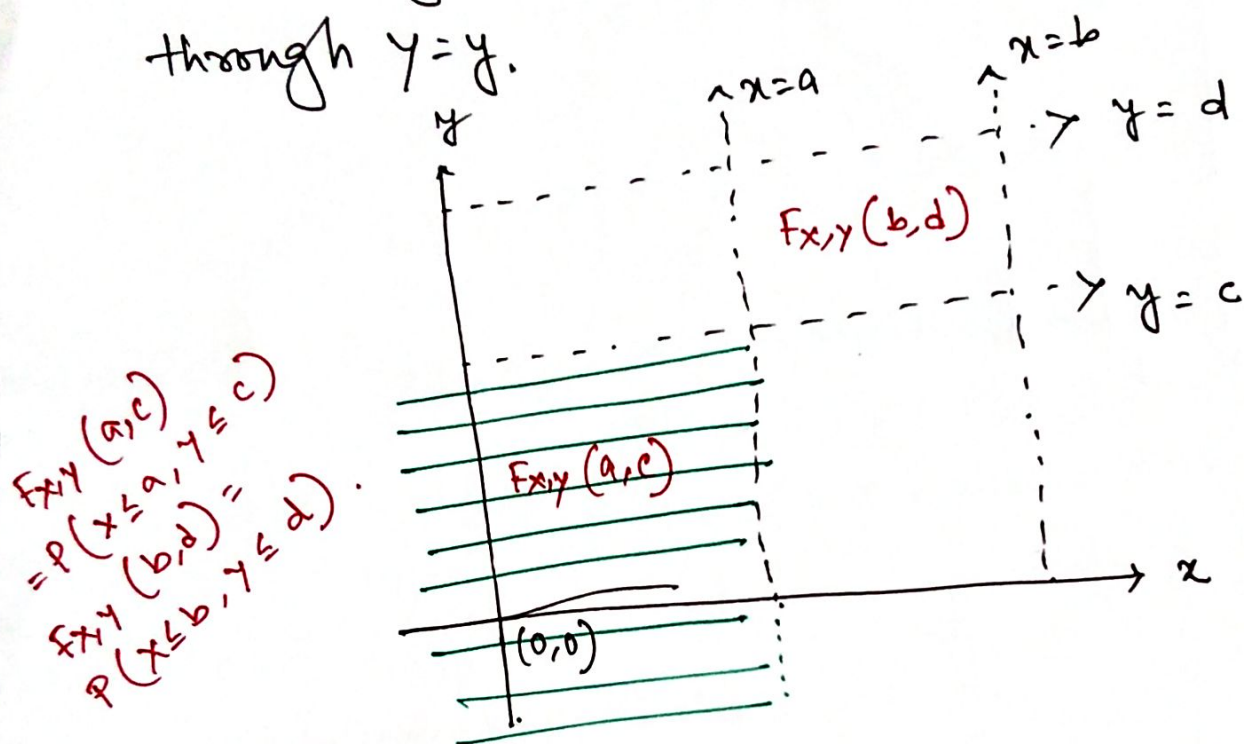 through Y=y.
y
x=a
x=b
y = d
F_{X,Y}(b,d)
y = c
F_{X,Y}(a,c)
F_{X,Y}(a,c)
=P(X≤a,Y≤c)
F_{X,Y}(b,d)=
P(X≤b,Y≤d).
x
(0,0)